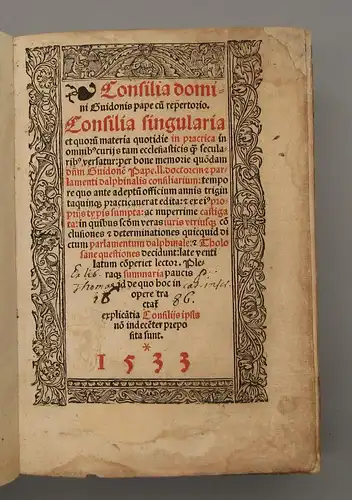 Consilia domi-
ni Guidonis pape cũ repertorio.
Consilia singularia
et quorũ materia quotidie in practica in
omnibꝰ curijs tam ecclesiasticis q̃ secula-
ribꝰ versatur: per bone memorie quõdam
dñm Guidonẽ Pape. ll. doctorem ⁊ par
lamenti dalphinalis consiliarium: tempo
re quo ante adeptũ officium annis trigin
taquinqꝫ practicauerat edita: ⁊ ex eiꝰ pro
prijs typis sumpta: ac nuperrime castiga
ta: in quibus scõm veras iuris vtriusqꝫ cõ
clusiones ⁊ determinationes quicquid di
ctum parlamentum dalphinale: ⁊ Tholo
sane questiones decidunt: late venti
latum cõperiet lector. Ple-
raqꝫ summaria paucis
id de quo hoc in
opere tra
ctaꝶ
explicãtia Consilijs ipsis
nõ indecẽter prepo
sita sunt.
*
1533
Ex lib. P.
Thomas
18 86.